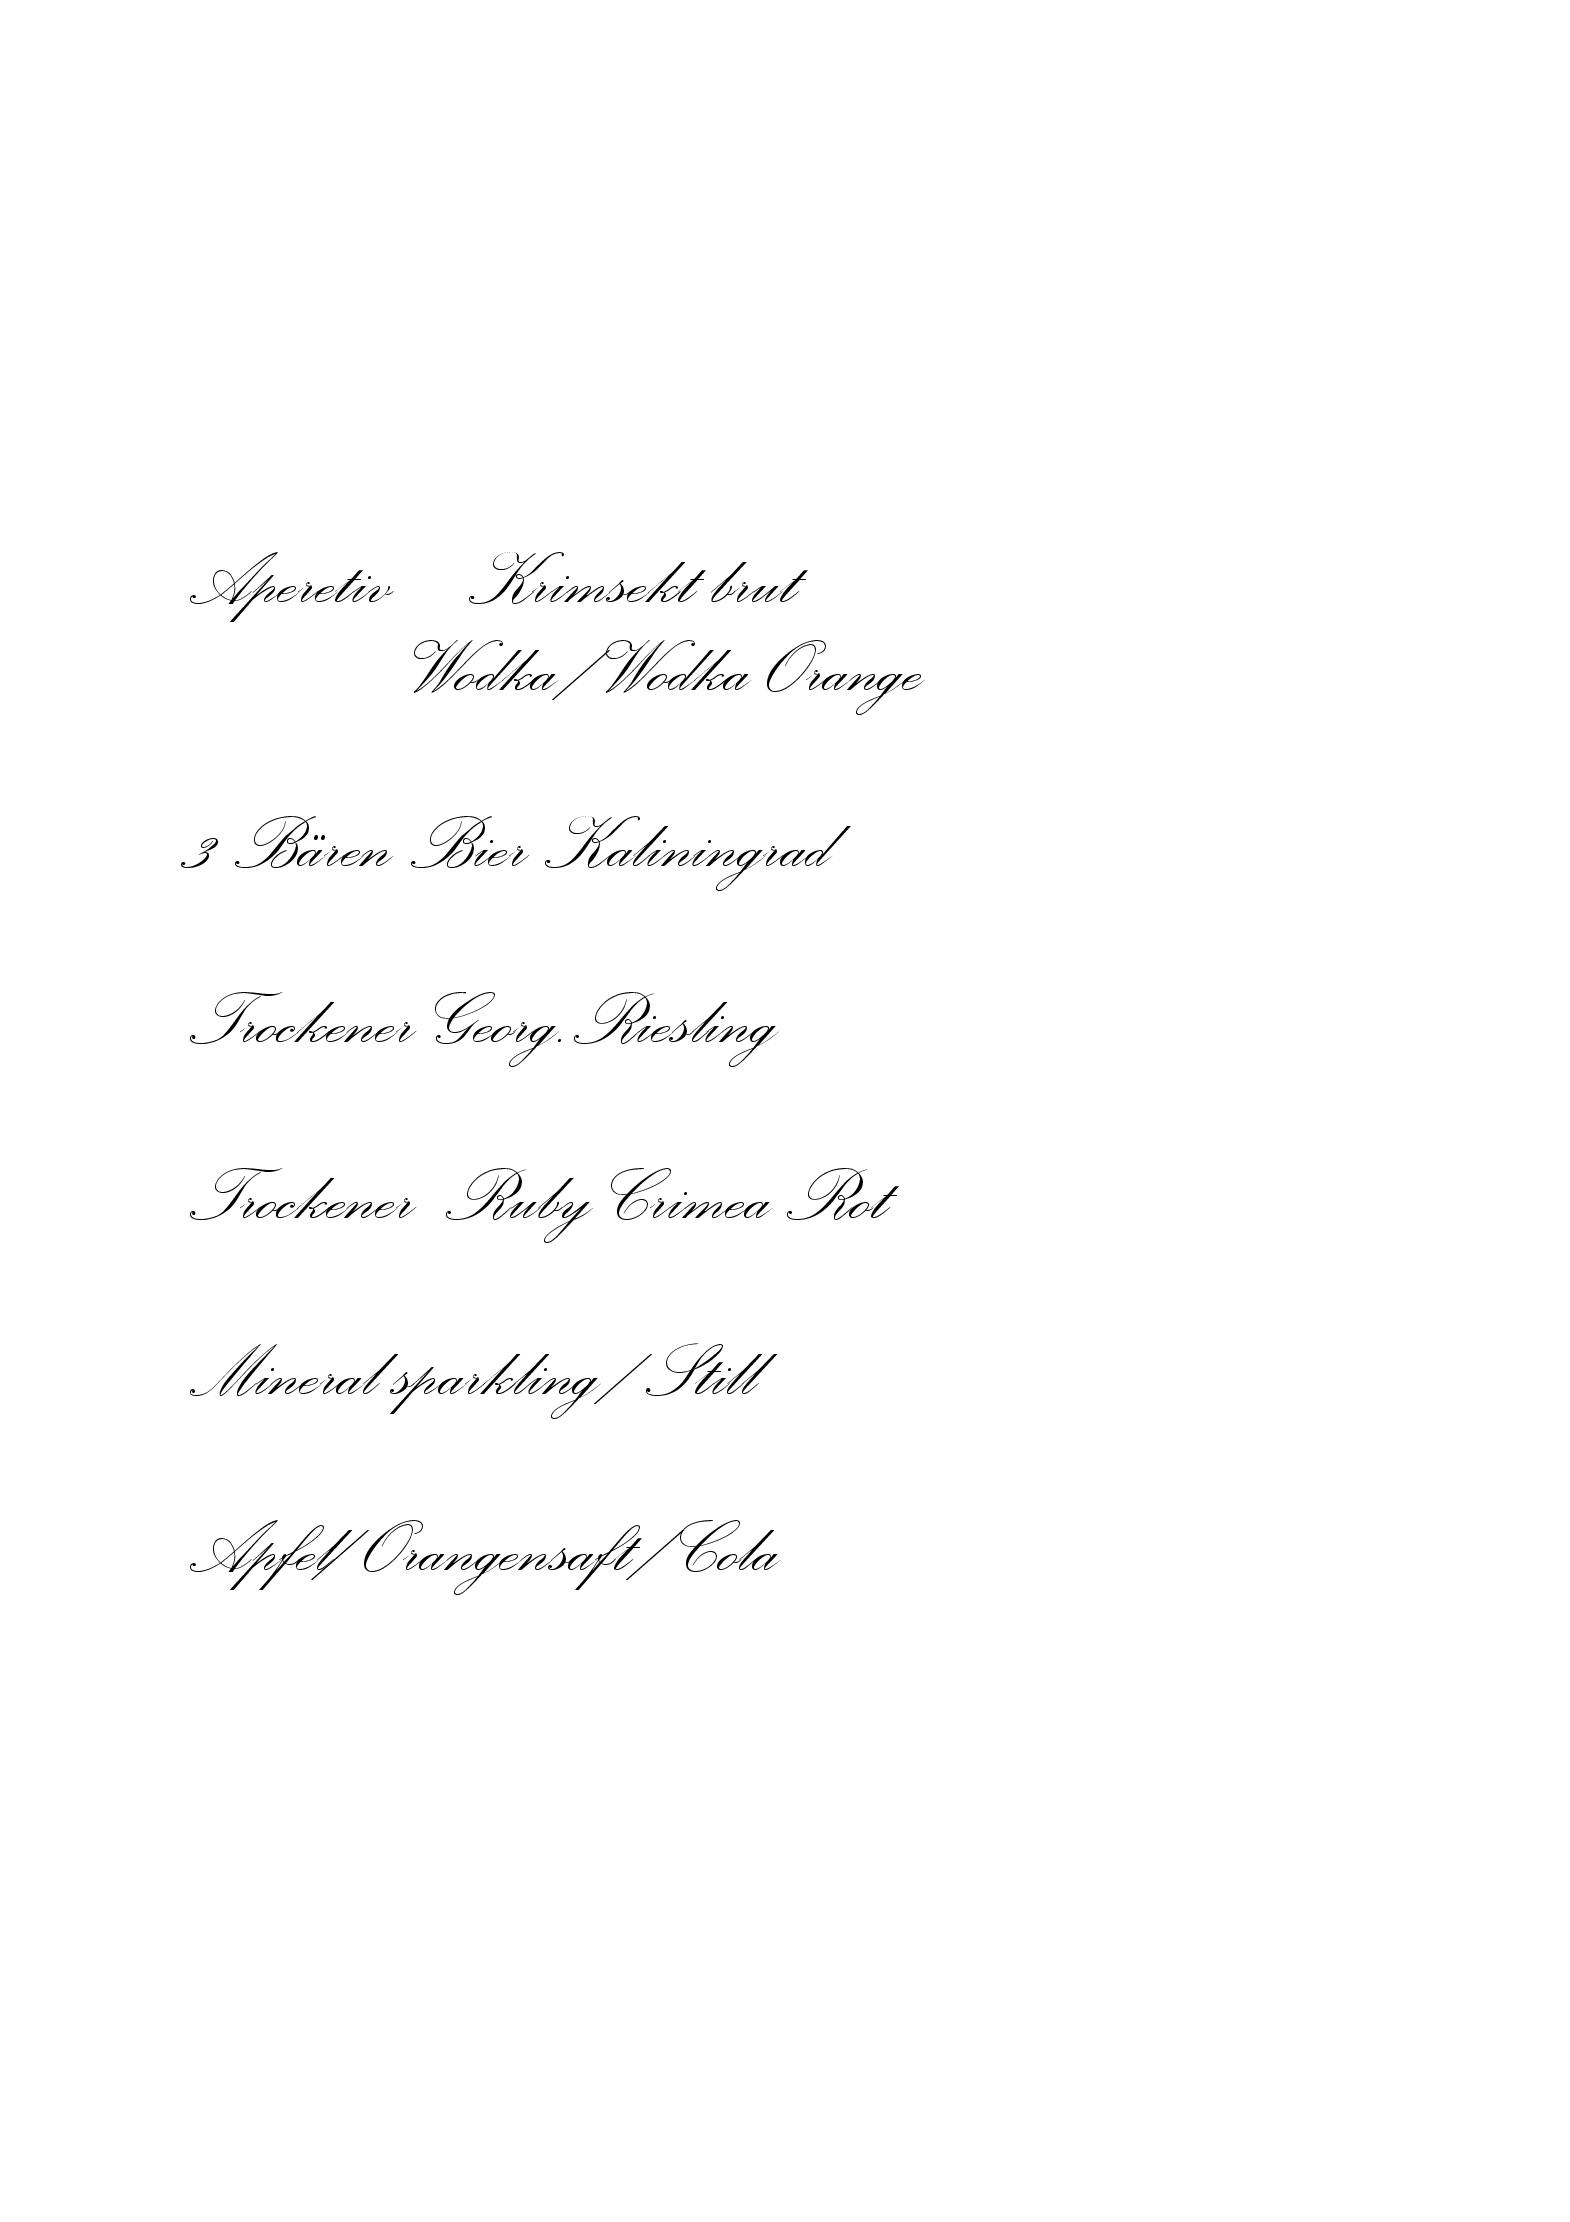 Aperetiv Krimsekt brut
Wodka/Wodka Orange
3 Bären Bier Kaliningrad
Trockener Georg. Riesling
Trockener Ruby Crimea Rot
Mineral sparkling/ Still
Apfel/ Orangensaft/Cola